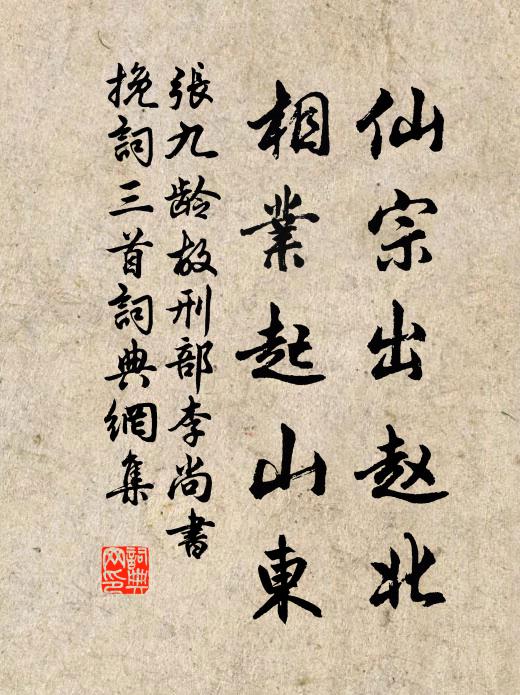 仙宗出赵北
相業起山東
張九龄故刑部李尚書
挽詞三首詞典網集
詞典
网印